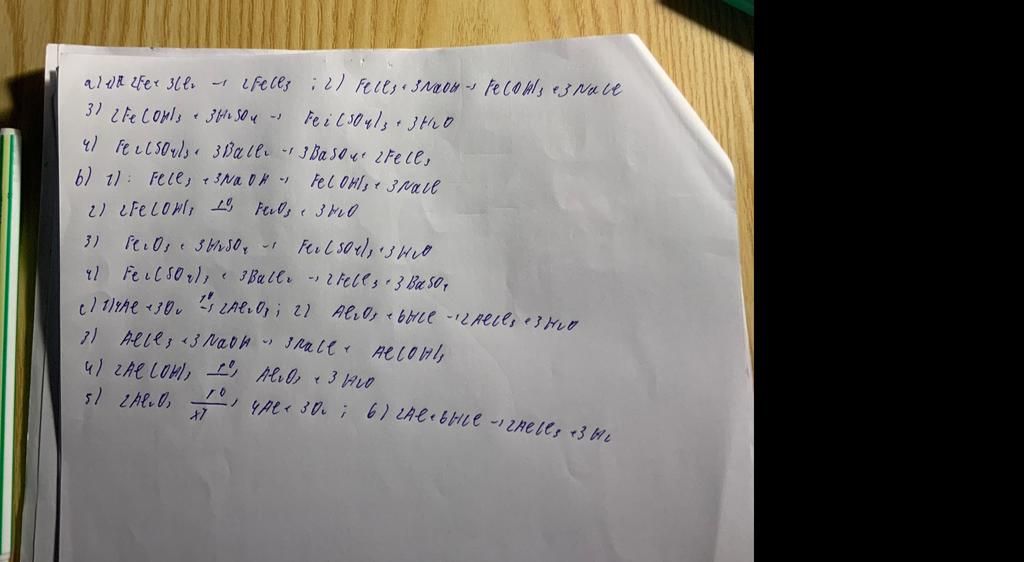 a) 1) 2Fe + 3Cl₂ → 2FeCl₃ ; 2) FeCl₃ + 3NaOH → Fe(OH)₃ + 3NaCl
3) 2Fe(OH)₃ + 3H₂SO₄ → Fe₂(SO₄)₃ + 3H₂O
4) Fe₂(SO₄)₃ + 3BaCl₂ → 3BaSO₄ + 2FeCl₃
b) 1): FeCl₃ + 3NaOH → Fe(OH)₃ + 3NaCl
2) 2Fe(OH)₃ →t° Fe₂O₃ + 3H₂O
3) Fe₂O₃ + 3H₂SO₄ → Fe₂(SO₄)₃ + 3H₂O
4) Fe₂(SO₄)₃ + 3BaCl₂ → 2FeCl₃ + 3BaSO₄
c) 1) 4Al + 3O₂ →t° 2Al₂O₃ ; 2) Al₂O₃ + 6HCl → 2AlCl₃ + 3H₂O
3) AlCl₃ + 3NaOH → 3NaCl + Al(OH)₃
4) 2Al(OH)₃ →t° Al₂O₃ + 3H₂O
5) 2Al₂O₃ →t° xt 4Al + 3O₂ ; 6) 2Al + 6HCl → 2AlCl₃ + 3H₂